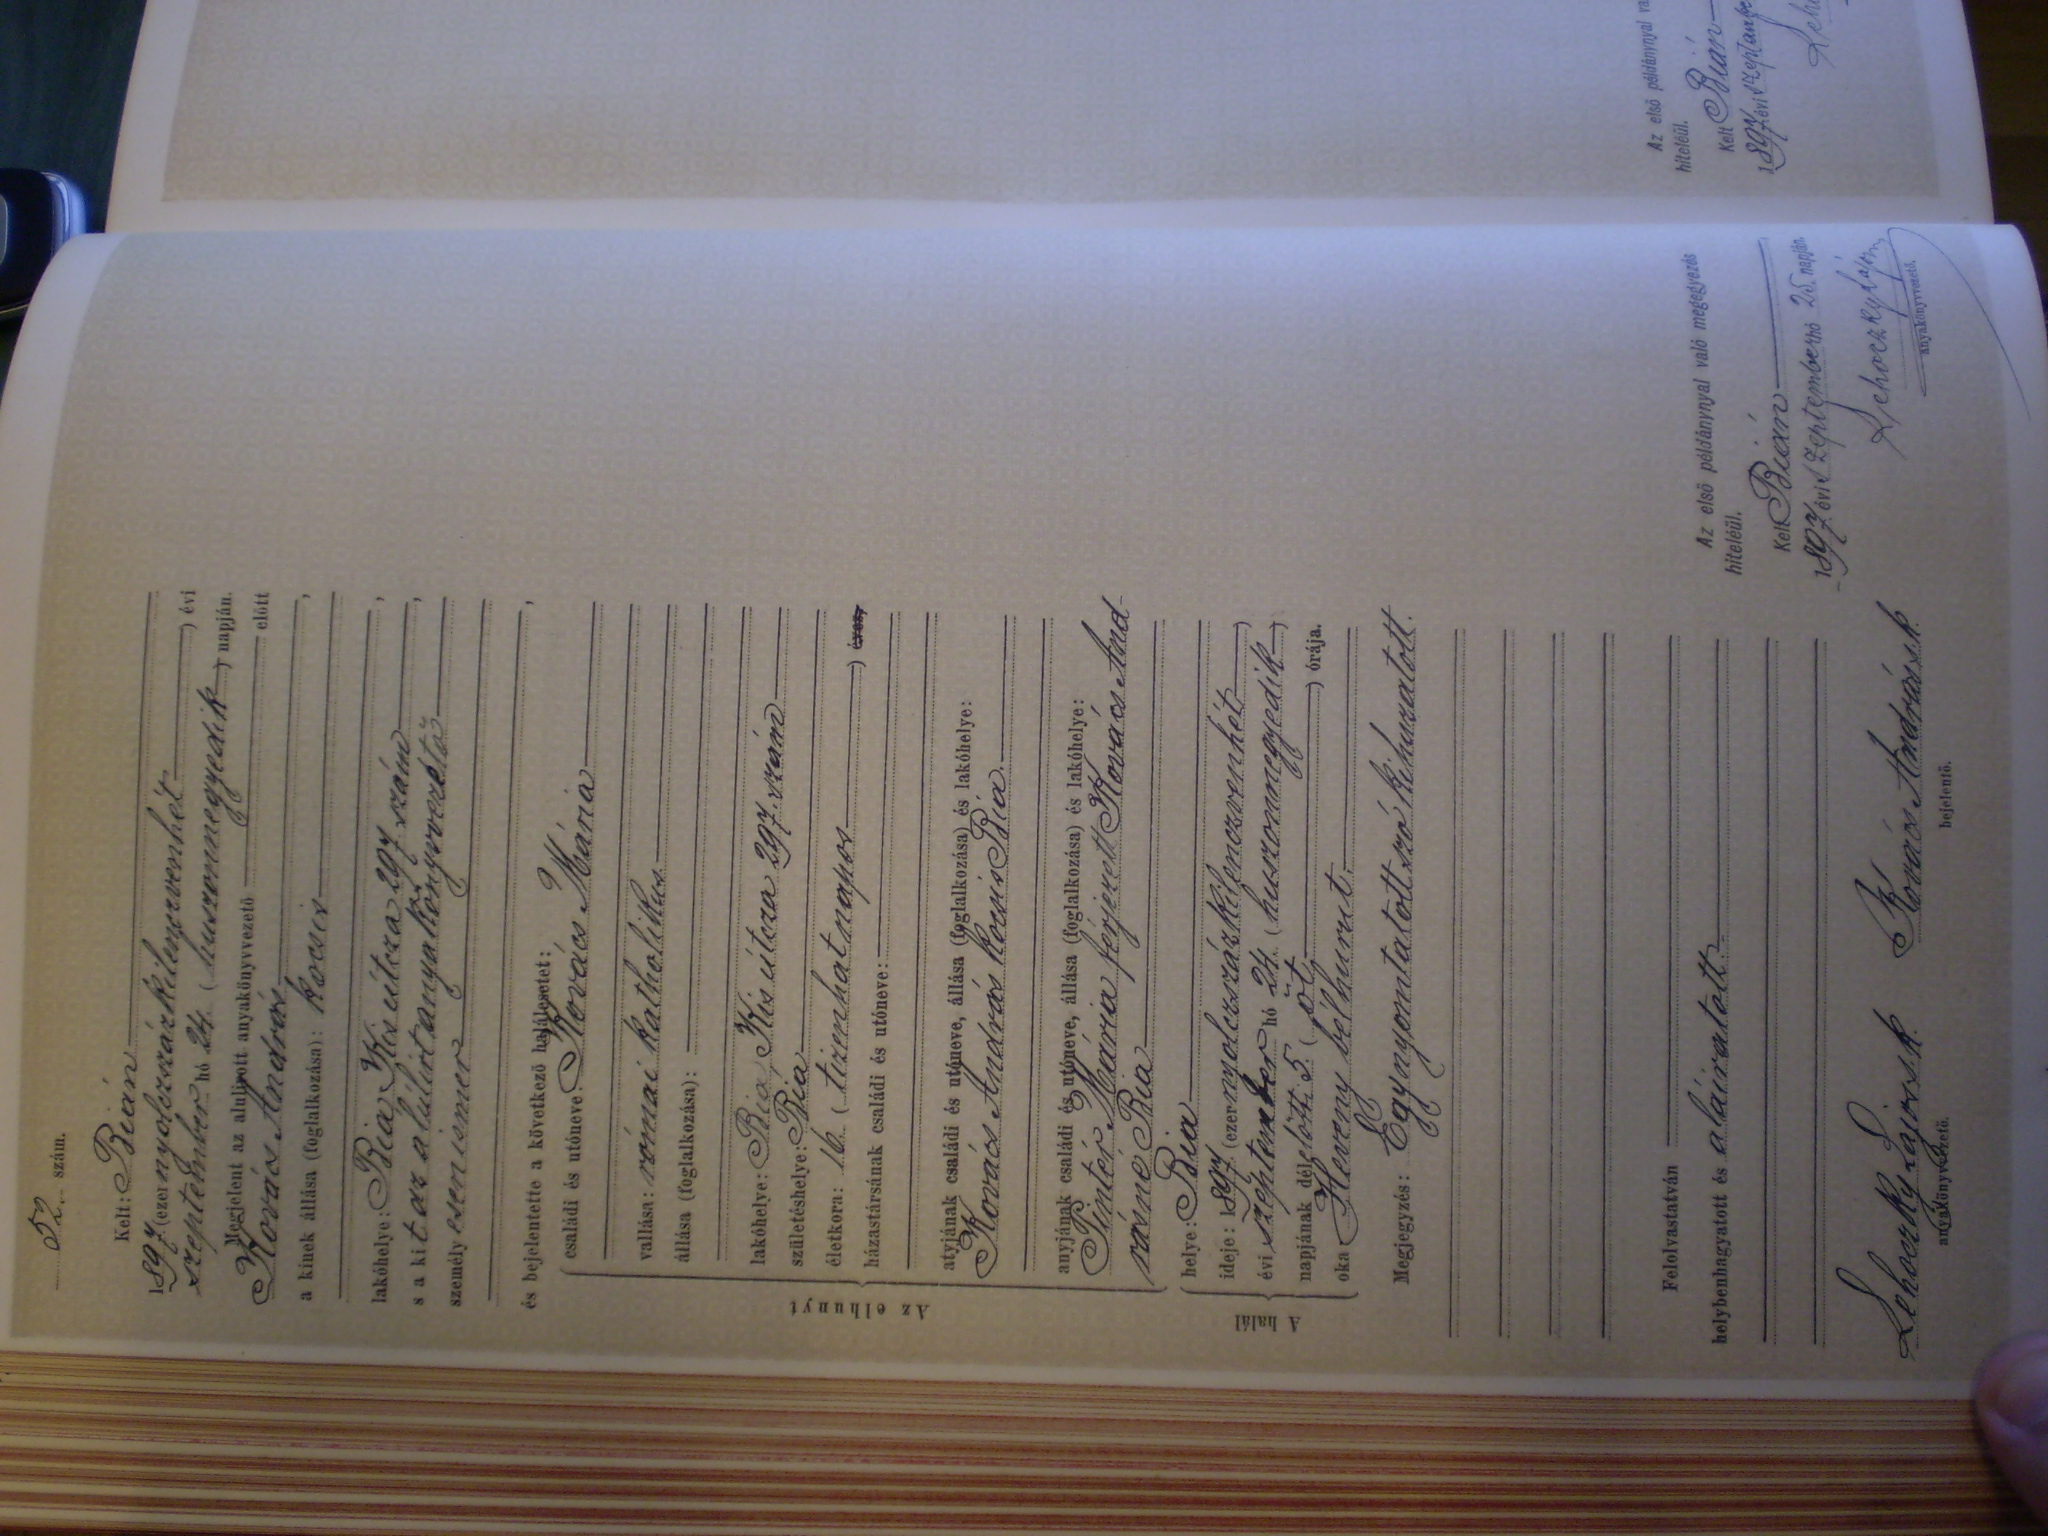 52. szám.
Kelt: Bián
1897 (ezernyolczszázkilenczvenhét) évi
szeptember hó 24. (huszonnegyedik) napján.
Megjelent az alulirott anyakönyvvezető előtt
Kovács András
a kinek állása (foglalkozása): kocsis,
lakóhelye: Bia, Kis útcza 297. szám,
s a kit az alúlirt anyakönyvvezető,
személyesen ismer
,
és bejelentette a következő halálesetet:
Az elhunyt
családi és utóneve: Kovács Mária
vallása: római katholikus.
állása (foglalkozása):
lakóhelye: Bia, Kis útcza 297. szám
születéshelye: Bia
életkora: 16. (tizenhat napos) éves,
házastársának családi és utóneve:
atyjának családi és utóneve, állása (foglalkozása) és lakóhelye:
Kovács András kocsis Bia.
anyjának családi és utóneve, állása (foglalkozása) és lakóhelye:
Pintér Mária férjezett Kovács And-
rásné Bia
A halál
helye: Bia
ideje: 1897 (ezernyolczszázkilenczvenhét)
évi szeptember hó 24. (huszonnegyedik)
napjának délelőtti 5. (öt) órája.
oka Heveny bélhurut.
Megjegyzés: Egy nyomtatott szó kihuzatott.
Felolvastatván
helybenhagyatott és aláiratott.
Lehoczky Lajos s. k.
anyakönyvvezető.
Kovács András s. k.
bejelentő.
Az első példánynyal való megegyezés
hiteléül.
Kelt Bián
1897 évi szeptember hó 25. napján.
Lehoczky Lajos
anyakönyvvezető.
Az első példánynyal
hiteléül.
Kelt Bián
1897 évi